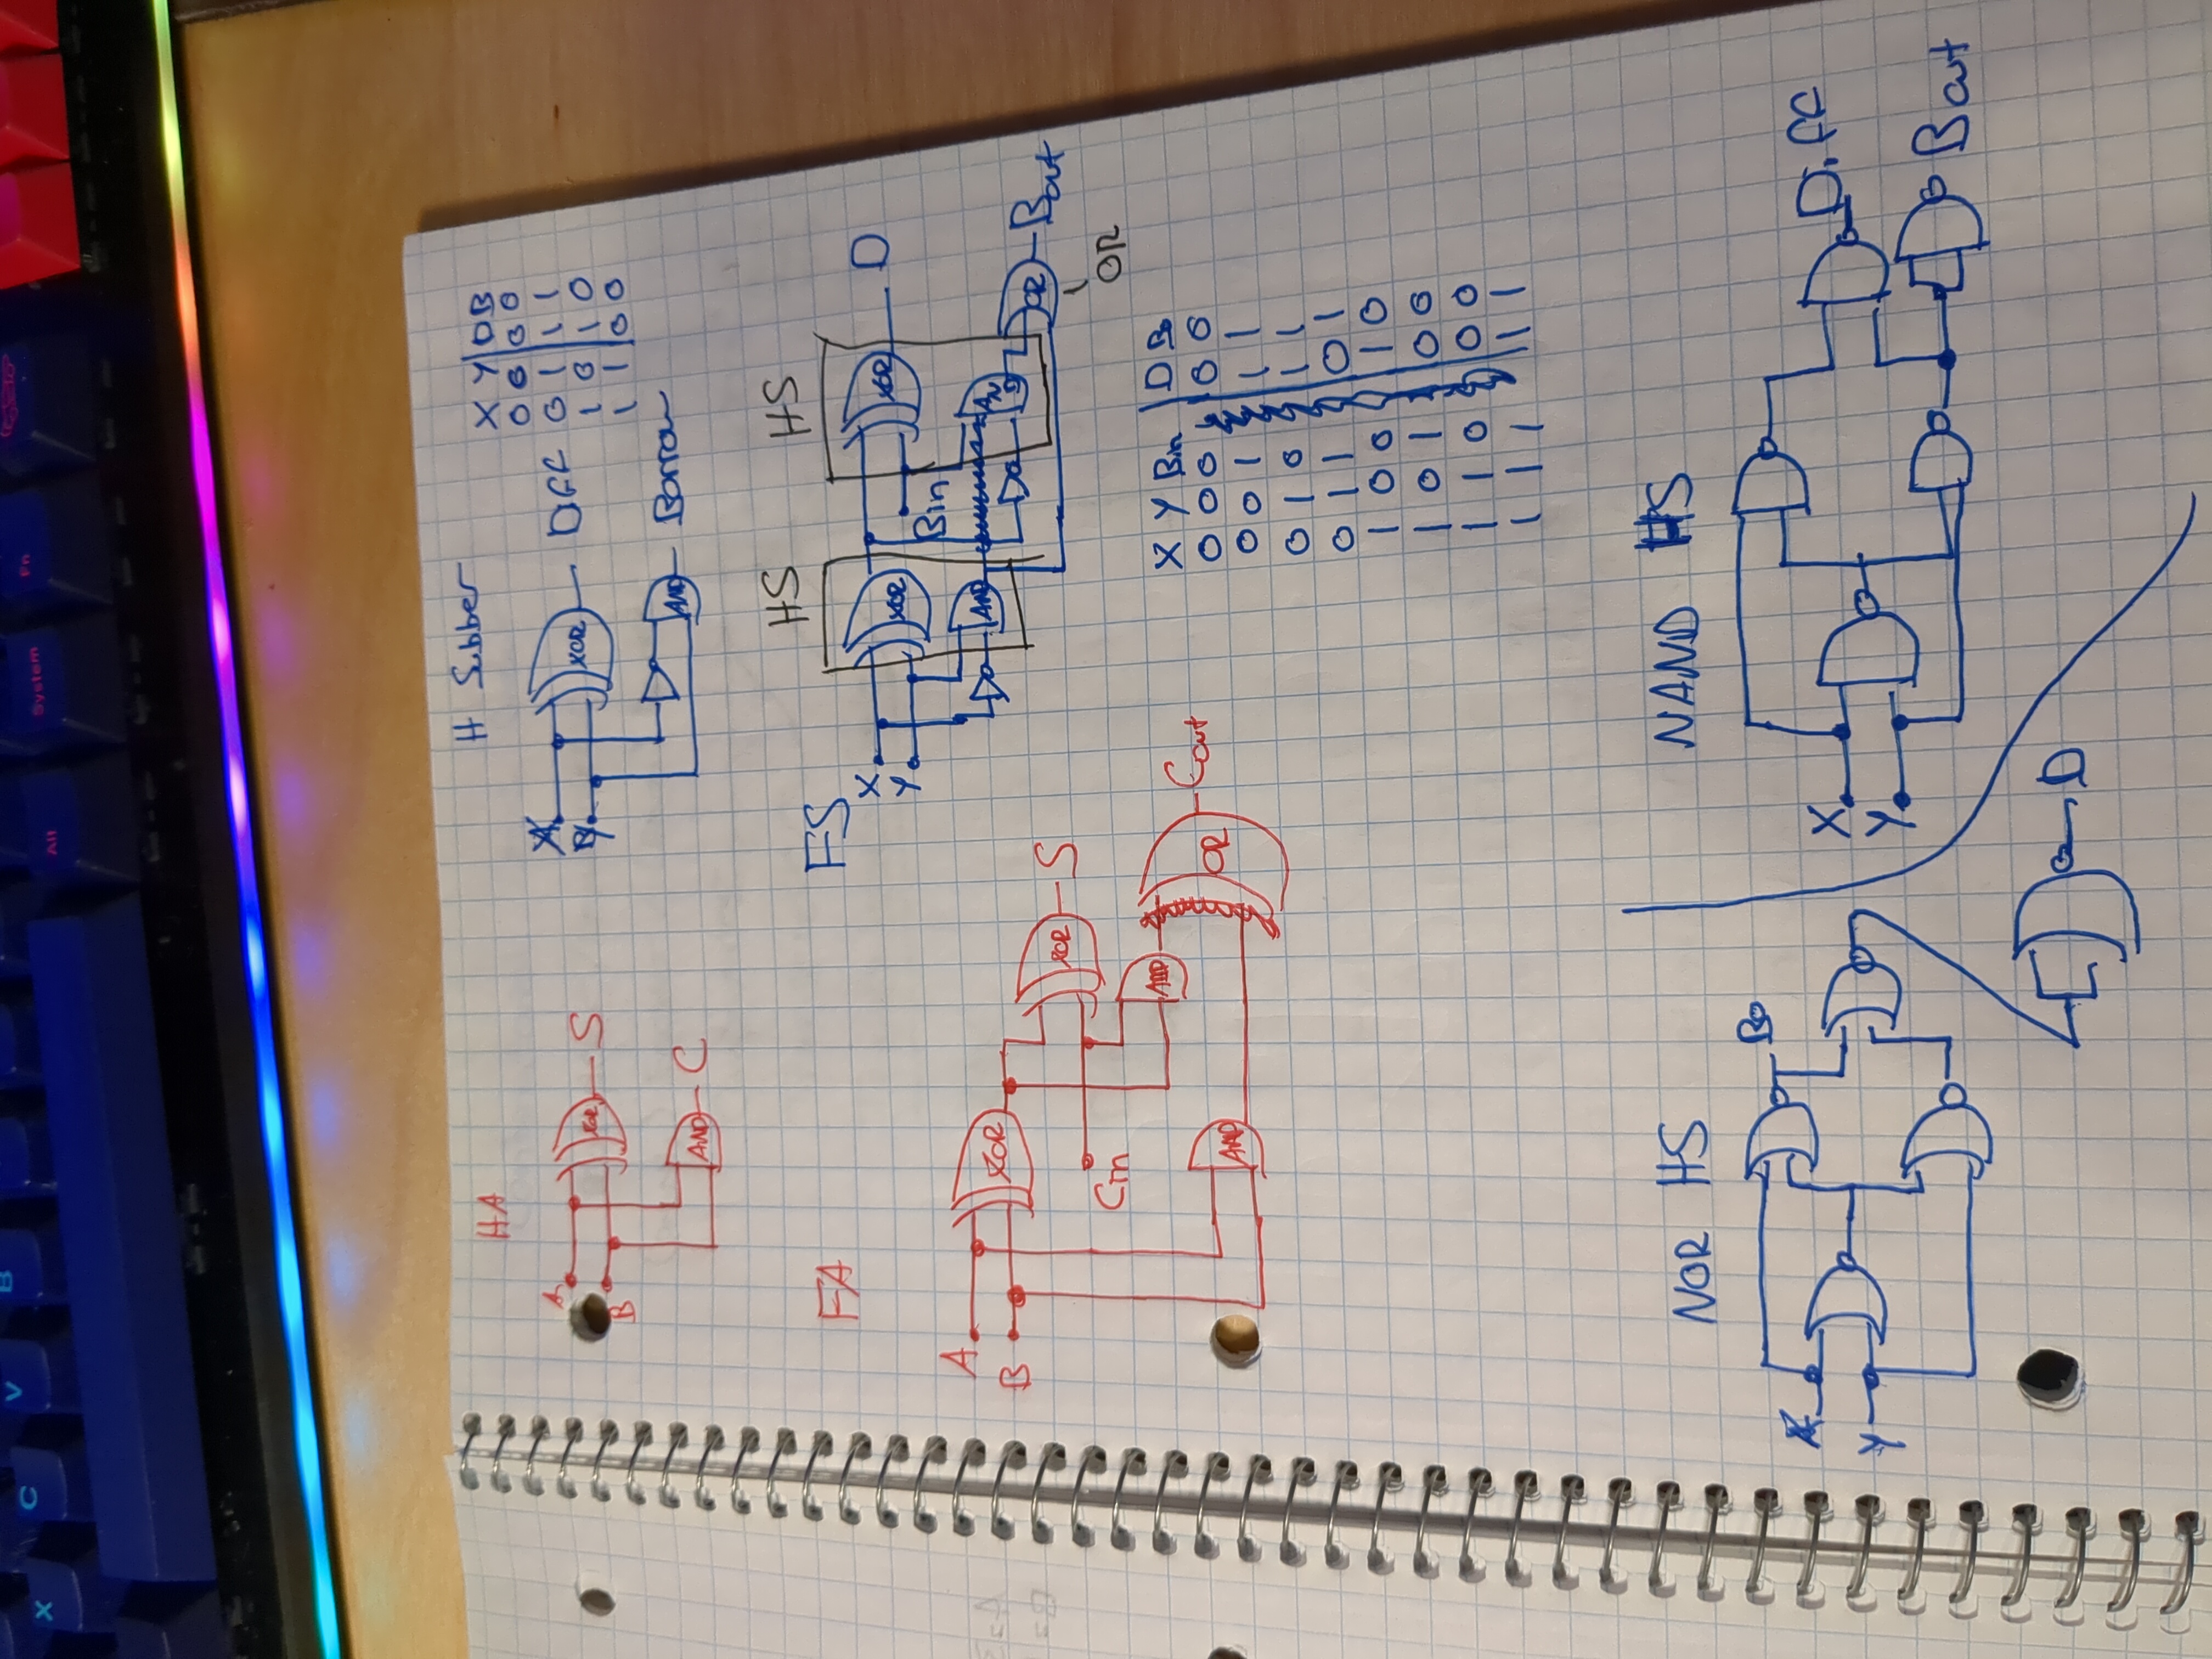 X C V B Alt System Fn
HA
A
B
XOR
S
AND
C
H Subber
X Y D B
0 0 0 0
0 1 1 1
1 0 1 0
1 1 0 0
XOR
Diff
AND
Borrow
FA
A
B
XOR
Cin
XOR
S
AND
AND
OR
Cout
HS HS
FS
X
Y
XOR
XOR
D
Bin
AND
AND
OR
Bout
OR
X Y Bin D Bo
0 0 0 0 0
0 0 1 1 1
0 1 0 1 1
0 1 1 0 1
1 0 0 1 0
1 0 1 0 0
1 1 0 0 0
1 1 1 1 1
NOR HS
X
Y
Bo
D
NAND HS
X
Y
Diff
Bout